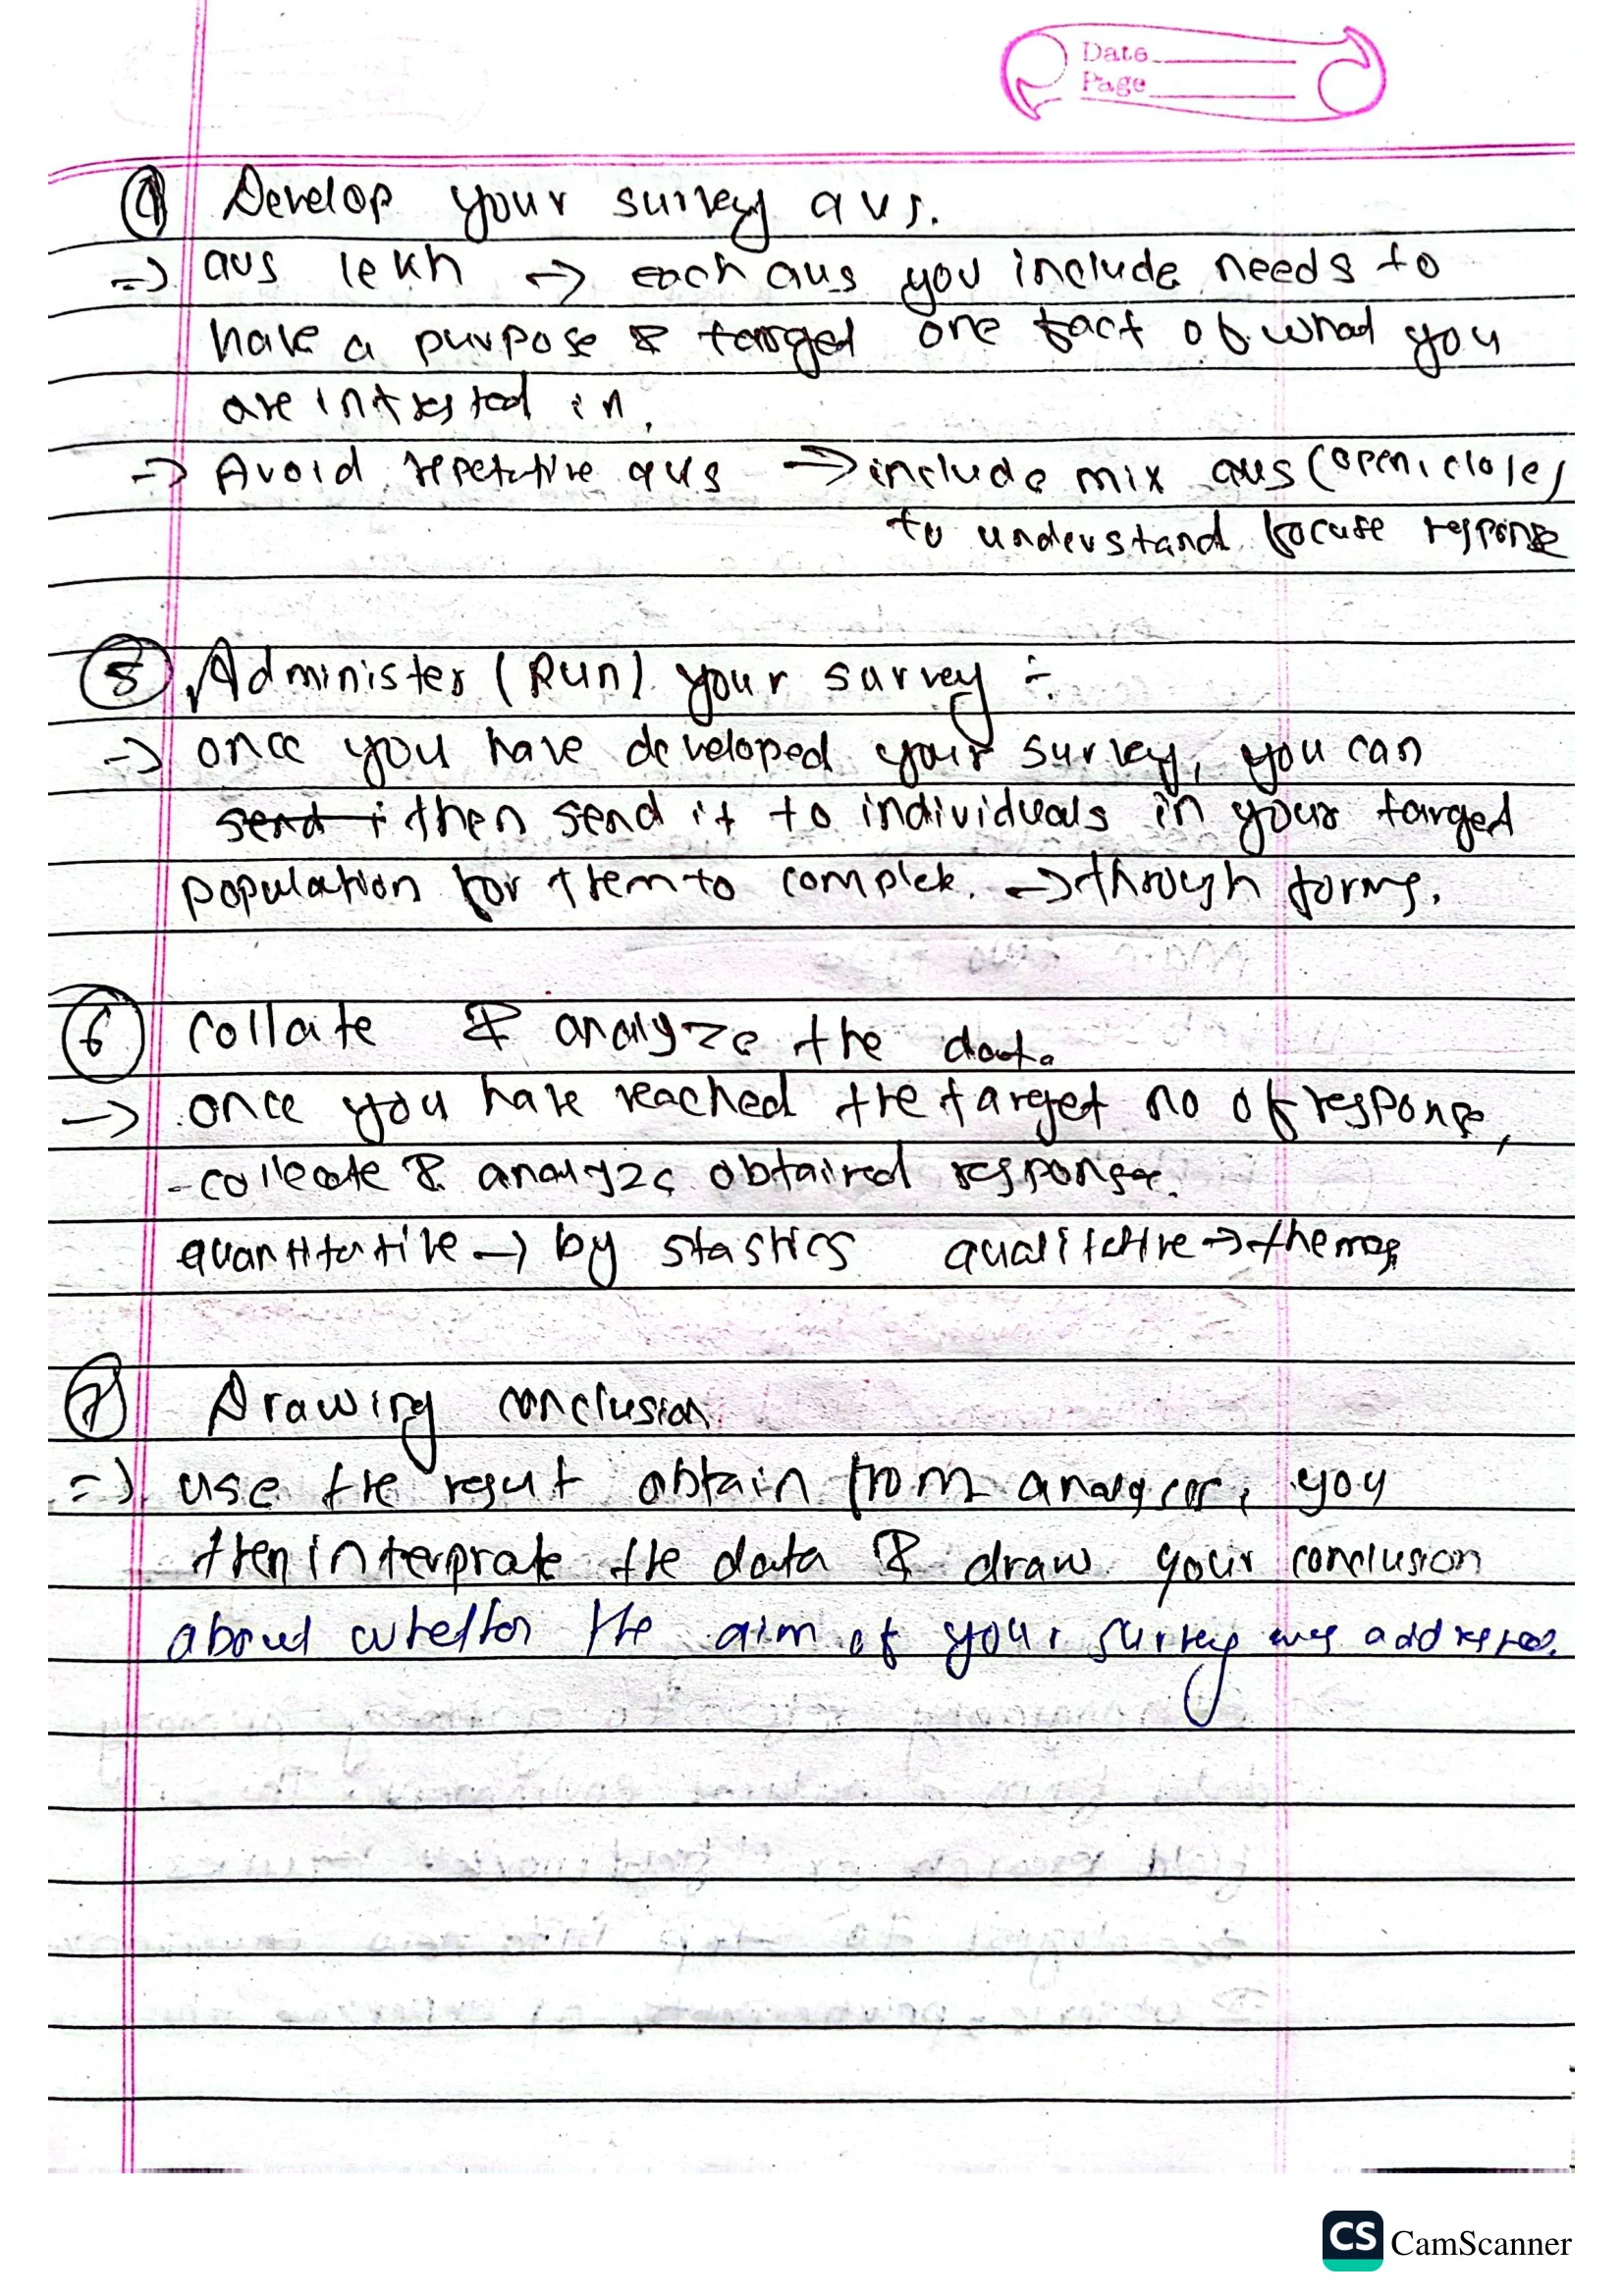 Date
Page
④ Develop your survey qus.
=> qus lekh -> each qus you include needs to
have a purpose & targed one fact of what you
are intrested in.
=> Avoid repetative qus -> include mix qus (open, close)
to understand focuse response
⑤ Administer (Run) your survey ÷
-> once you have developed your survey, you can
send i then send it to individuals in your targed
population for them to complete. -> through forms.
⑥ Collate & analyze the data
-> once you have reached the target no of response,
- collecate & analyze obtained response.
quantitative -> by stastics qualitative -> themes
⑦ Drawing conclusion
=> use the resut obtain from you
then interprate the data & draw your conclusion
about whether the aim of your survey was addressed.
CS CamScanner